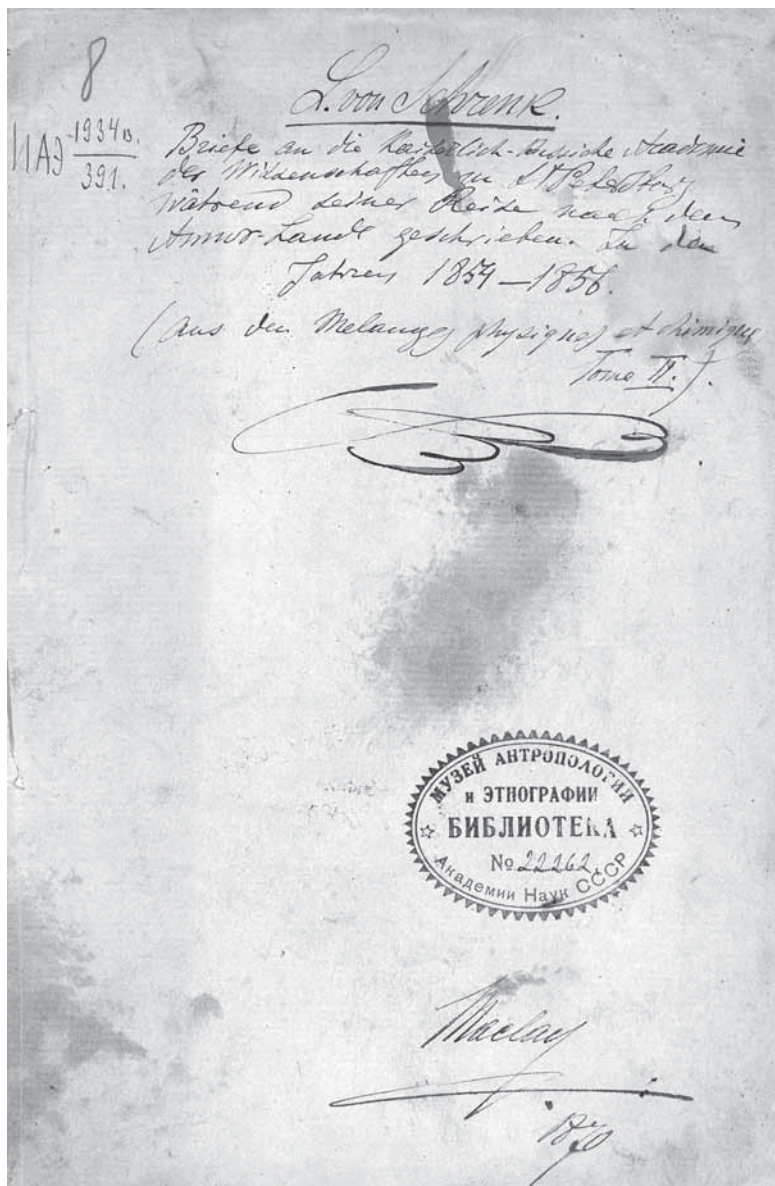 8
L. von Schrenk.
ИАЭ 1934 в.
391.
Briefe an die Kaiserlich-Russiche Academie
der Wissenschaften zu St Petersburg
während seiner Reise nach dem
Amur-Lande geschrieben. In den
Jahren 1854–1856.
(Aus den Melanges physiques et chimiques
Tome II.).
МУЗЕЙ АНТРОПОЛОГИИ
и ЭТНОГРАФИИ
БИБЛИОТЕКА
№ 22262
Академии Наук СССР
Maclay
1870